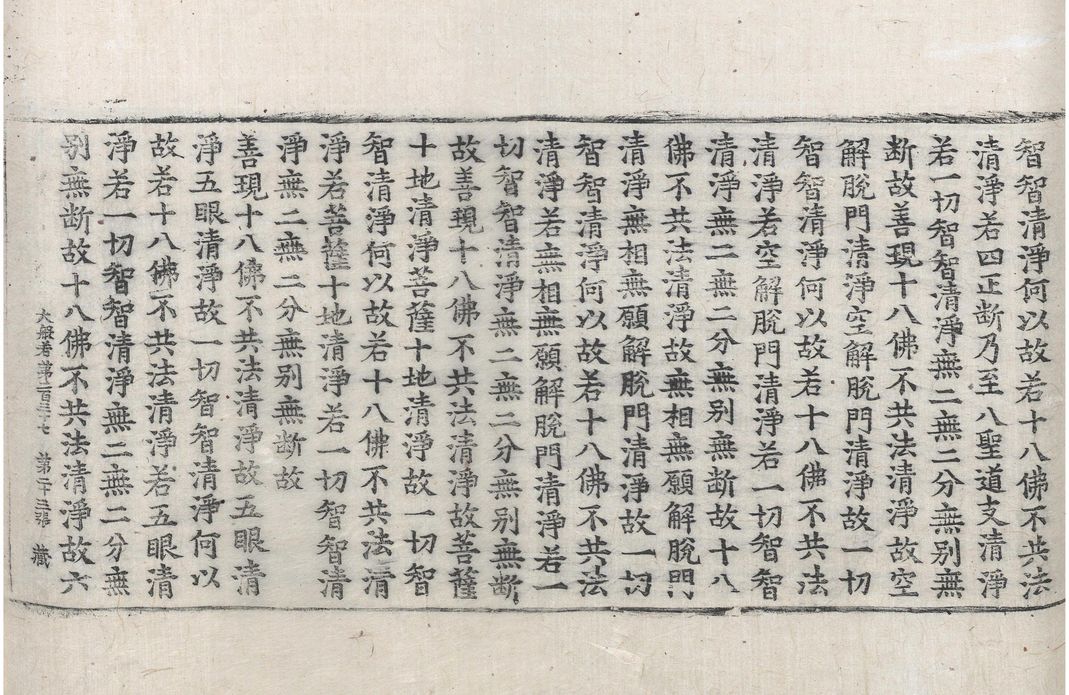 智智清淨何以故若十八佛不共法
清淨若四正断乃至八聖道支清淨
若一切智智清淨無二無二分無别無
断故善現十八佛不共法清淨故空
解脫門清淨空解脫門清淨故一切
智智清淨何以故若十八佛不共法
清淨若空解脫門清淨若一切智智
清淨無二無二分無别無断故十八
佛不共法清淨故無相無願解脫門
清淨無相無願解脫門清淨故一切
智智清淨何以故若十八佛不共法
清淨若無相無願解脫門清淨若一
切智智清淨無二無二分無别無断
故善現十八佛不共法清淨故菩薩
十地清淨菩薩十地清淨故一切智
智清淨何以故若十八佛不共法清
淨若菩薩十地清淨若一切智智清
淨無二無二分無别無断故
善現十八佛不共法清淨故五眼清
淨五眼清淨故一切智智清淨何以
故若十八佛不共法清淨若五眼清
淨若一切智智清淨無二無二分無
别無断故十八佛不共法清淨故六
大般若第二百三十七 第二十三張 藏